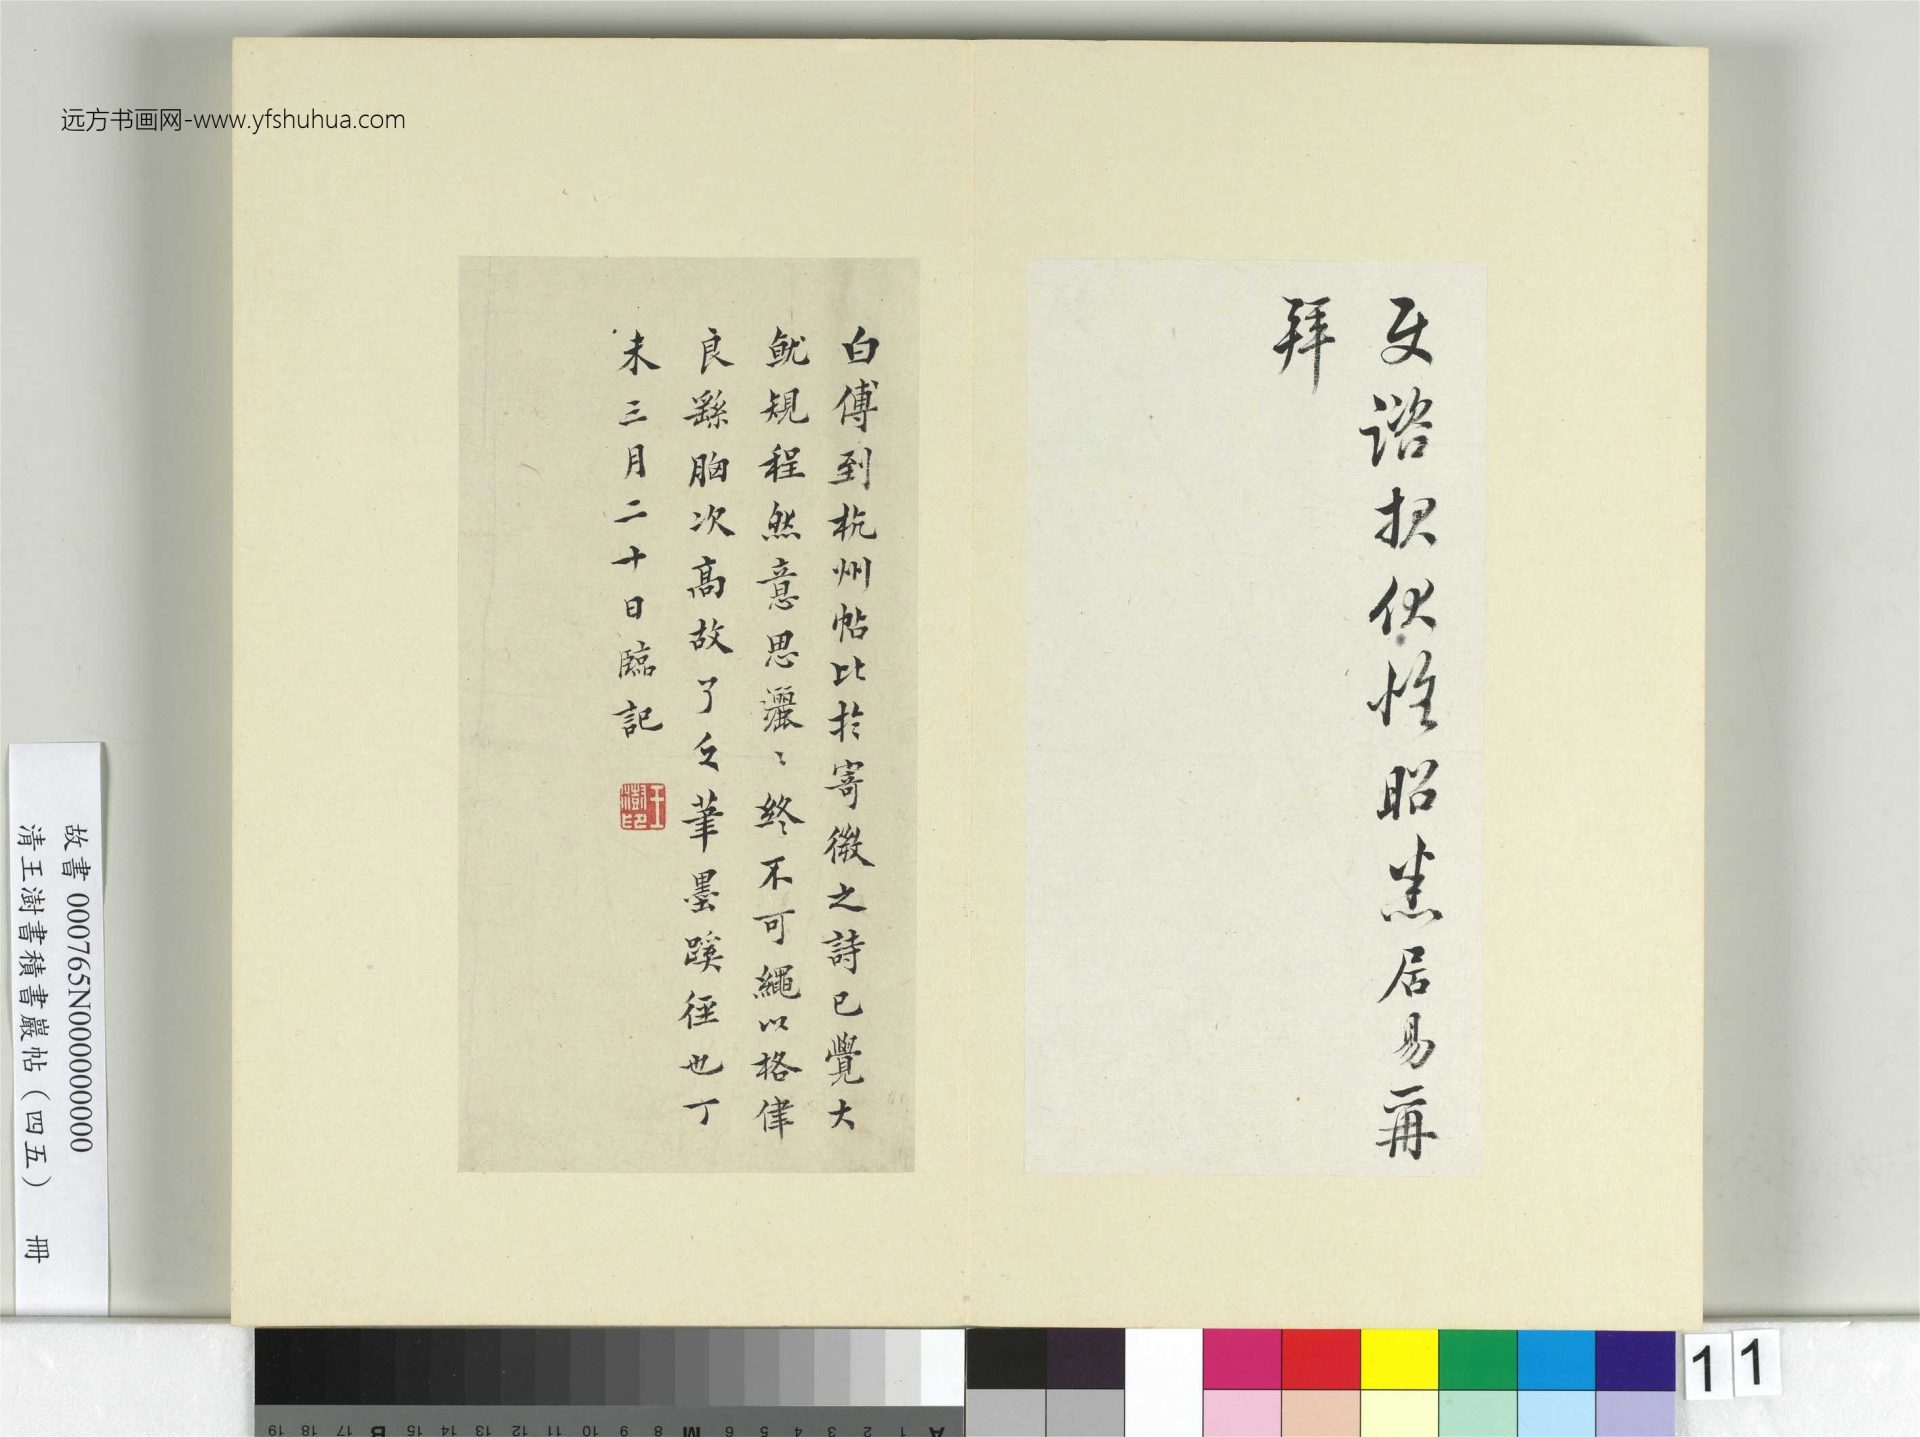 远方书画网-www.yfshuhua.com
諮報伏惟昭悉居易再
拜
白傅到杭州帖比於寄微之詩已覺大
就規程然意思灑〻終不可繩以格律
良繇胸次高故了乏筆墨蹊徑也丁
未三月二十日臨記
王澍印
故書 000765N000000000
清王澍書積書巖帖(四五) 冊
11
A 1 2 3 4 5 6 M 8 9 10 11 12 13 14 15 B 17 18 19